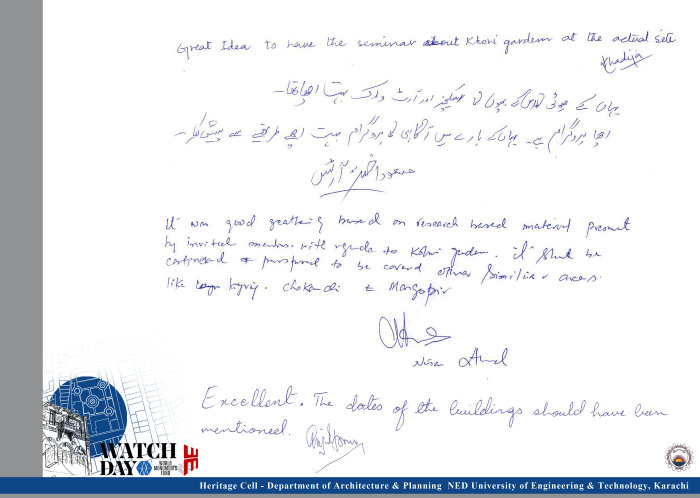 Great Idea to have the seminar about Khori gardem at the actual site
Khadija
یہاں کے چھوٹی کلاس کے بچوں کا اسکیچز اور آرٹ ورک بہت اچھا تھا۔
اچھا پروگرام ہے۔ یہاں کے بارے میں آگاہی کا پروگرام بہت اچھے طریقے سے پیش کیا۔
مسعود آرٹس
It was good greathering based on research based material present
by invited members. with to Kohri garden. it be
continued & to be coverd other Similiar areas
like . Chokandi & Mangopir
Nisar
Excellent. The dates of the buildings should have been
mentioned.
WATCH
DAY
WORLD
MONUMENTS
FUND
Heritage Cell - Department of Architecture & Planning NED University of Engineering & Technology, Karachi